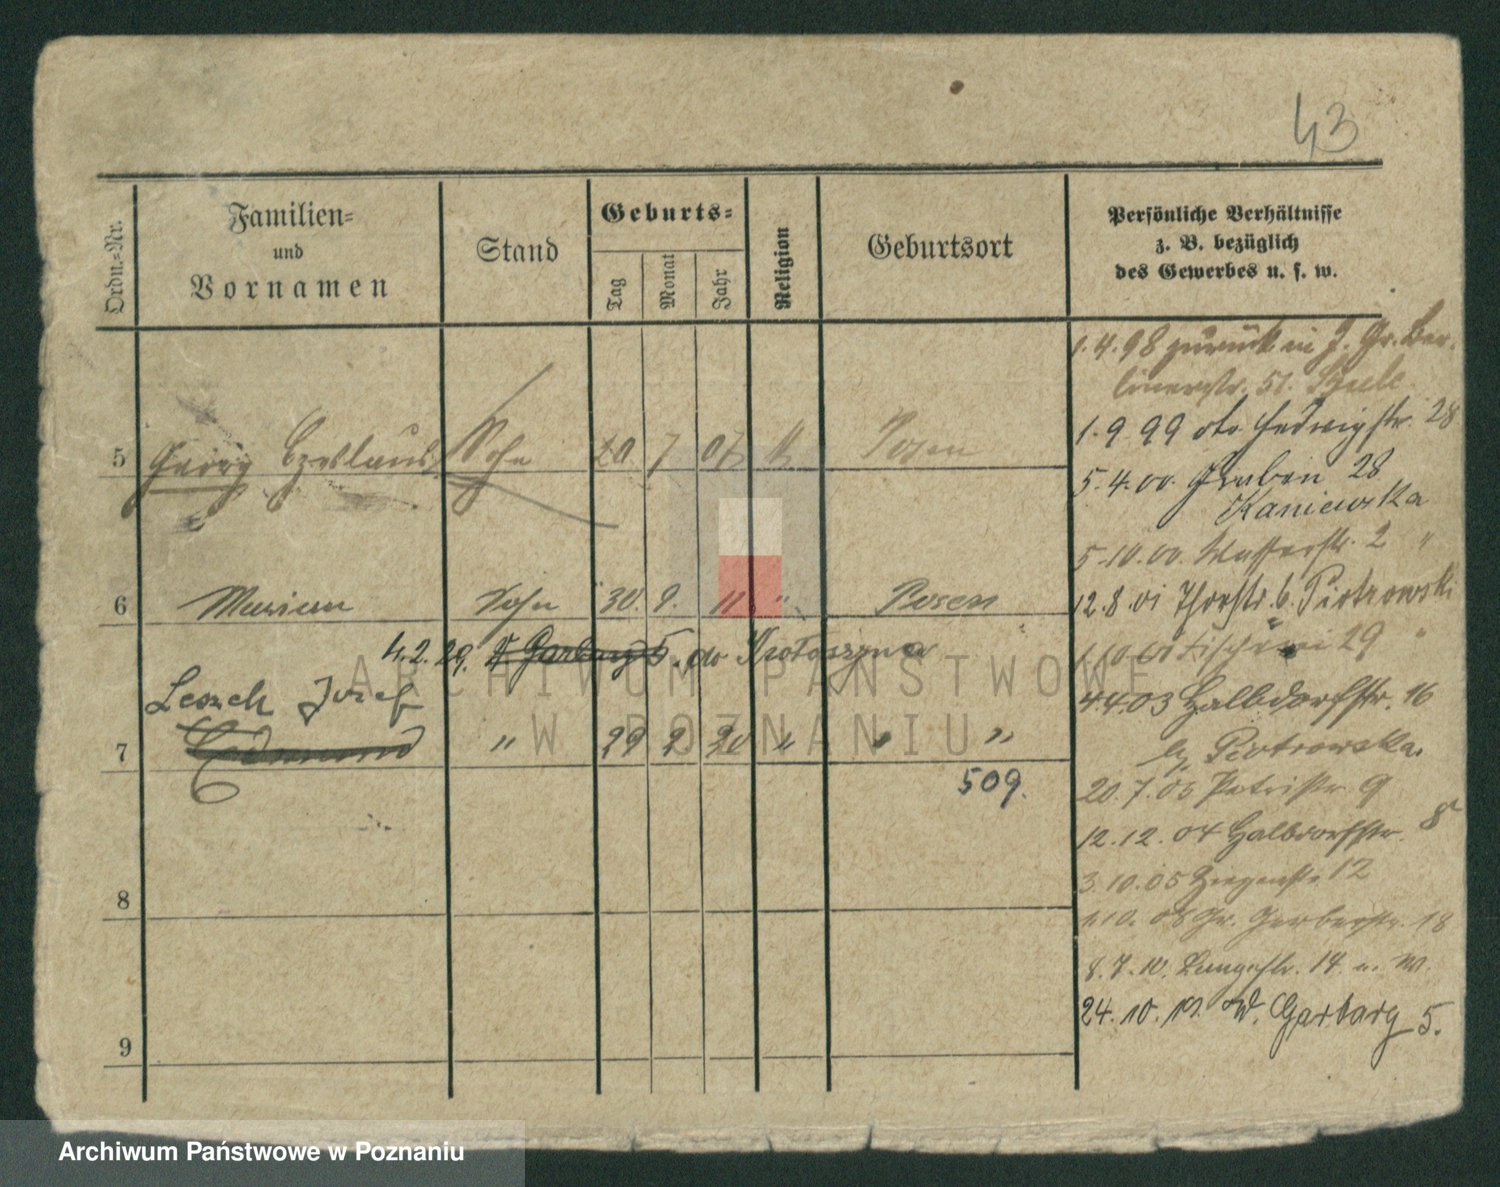 43
Ordn.-Nr.
Familien-
und
Vornamen
Stand
Geburts-
Tag
Monat
Jahr
Religion
Geburtsort
Persönliche Verhältnisse
z. B. bezüglich
des Gewerbes u. s. w.
5 Georg Czeslaus Sohn 20. 7 07 k Posen
6 Marian Sohn 30. 9. 11 " Posen
4.2.29. W Garbary 5. do Krotoszyna
Leszek Józef
7 Edmund " 29 2 20 " " "
509.
8
9
1.4.98 zurück in J. Gr. Ber-
linerstr. 51.
1.9.99 Hedwigstr. 28
5.4.00. Graben 28
Kaniewska
5.10.00. Wasserstr. 2 "
12.8.01 Thorstr. 6. Piotrowski
1.10.01 Fischerei 29 "
4.4.03 Halbdorfstr. 16
by Piotrowska.
20.7.05 Petristr. 9
12.12.04 Halbdorfstr. 8
3.10.05 Ziegenstr. 12
1.10.08 Gr. Gerberstr. 18
8.7.10. Langestr. 14 u. W.
24.10. W. Garbary 5.
ARCHIWUM PAŃSTWOWE
W POZNANIU
Archiwum Państwowe w Poznaniu